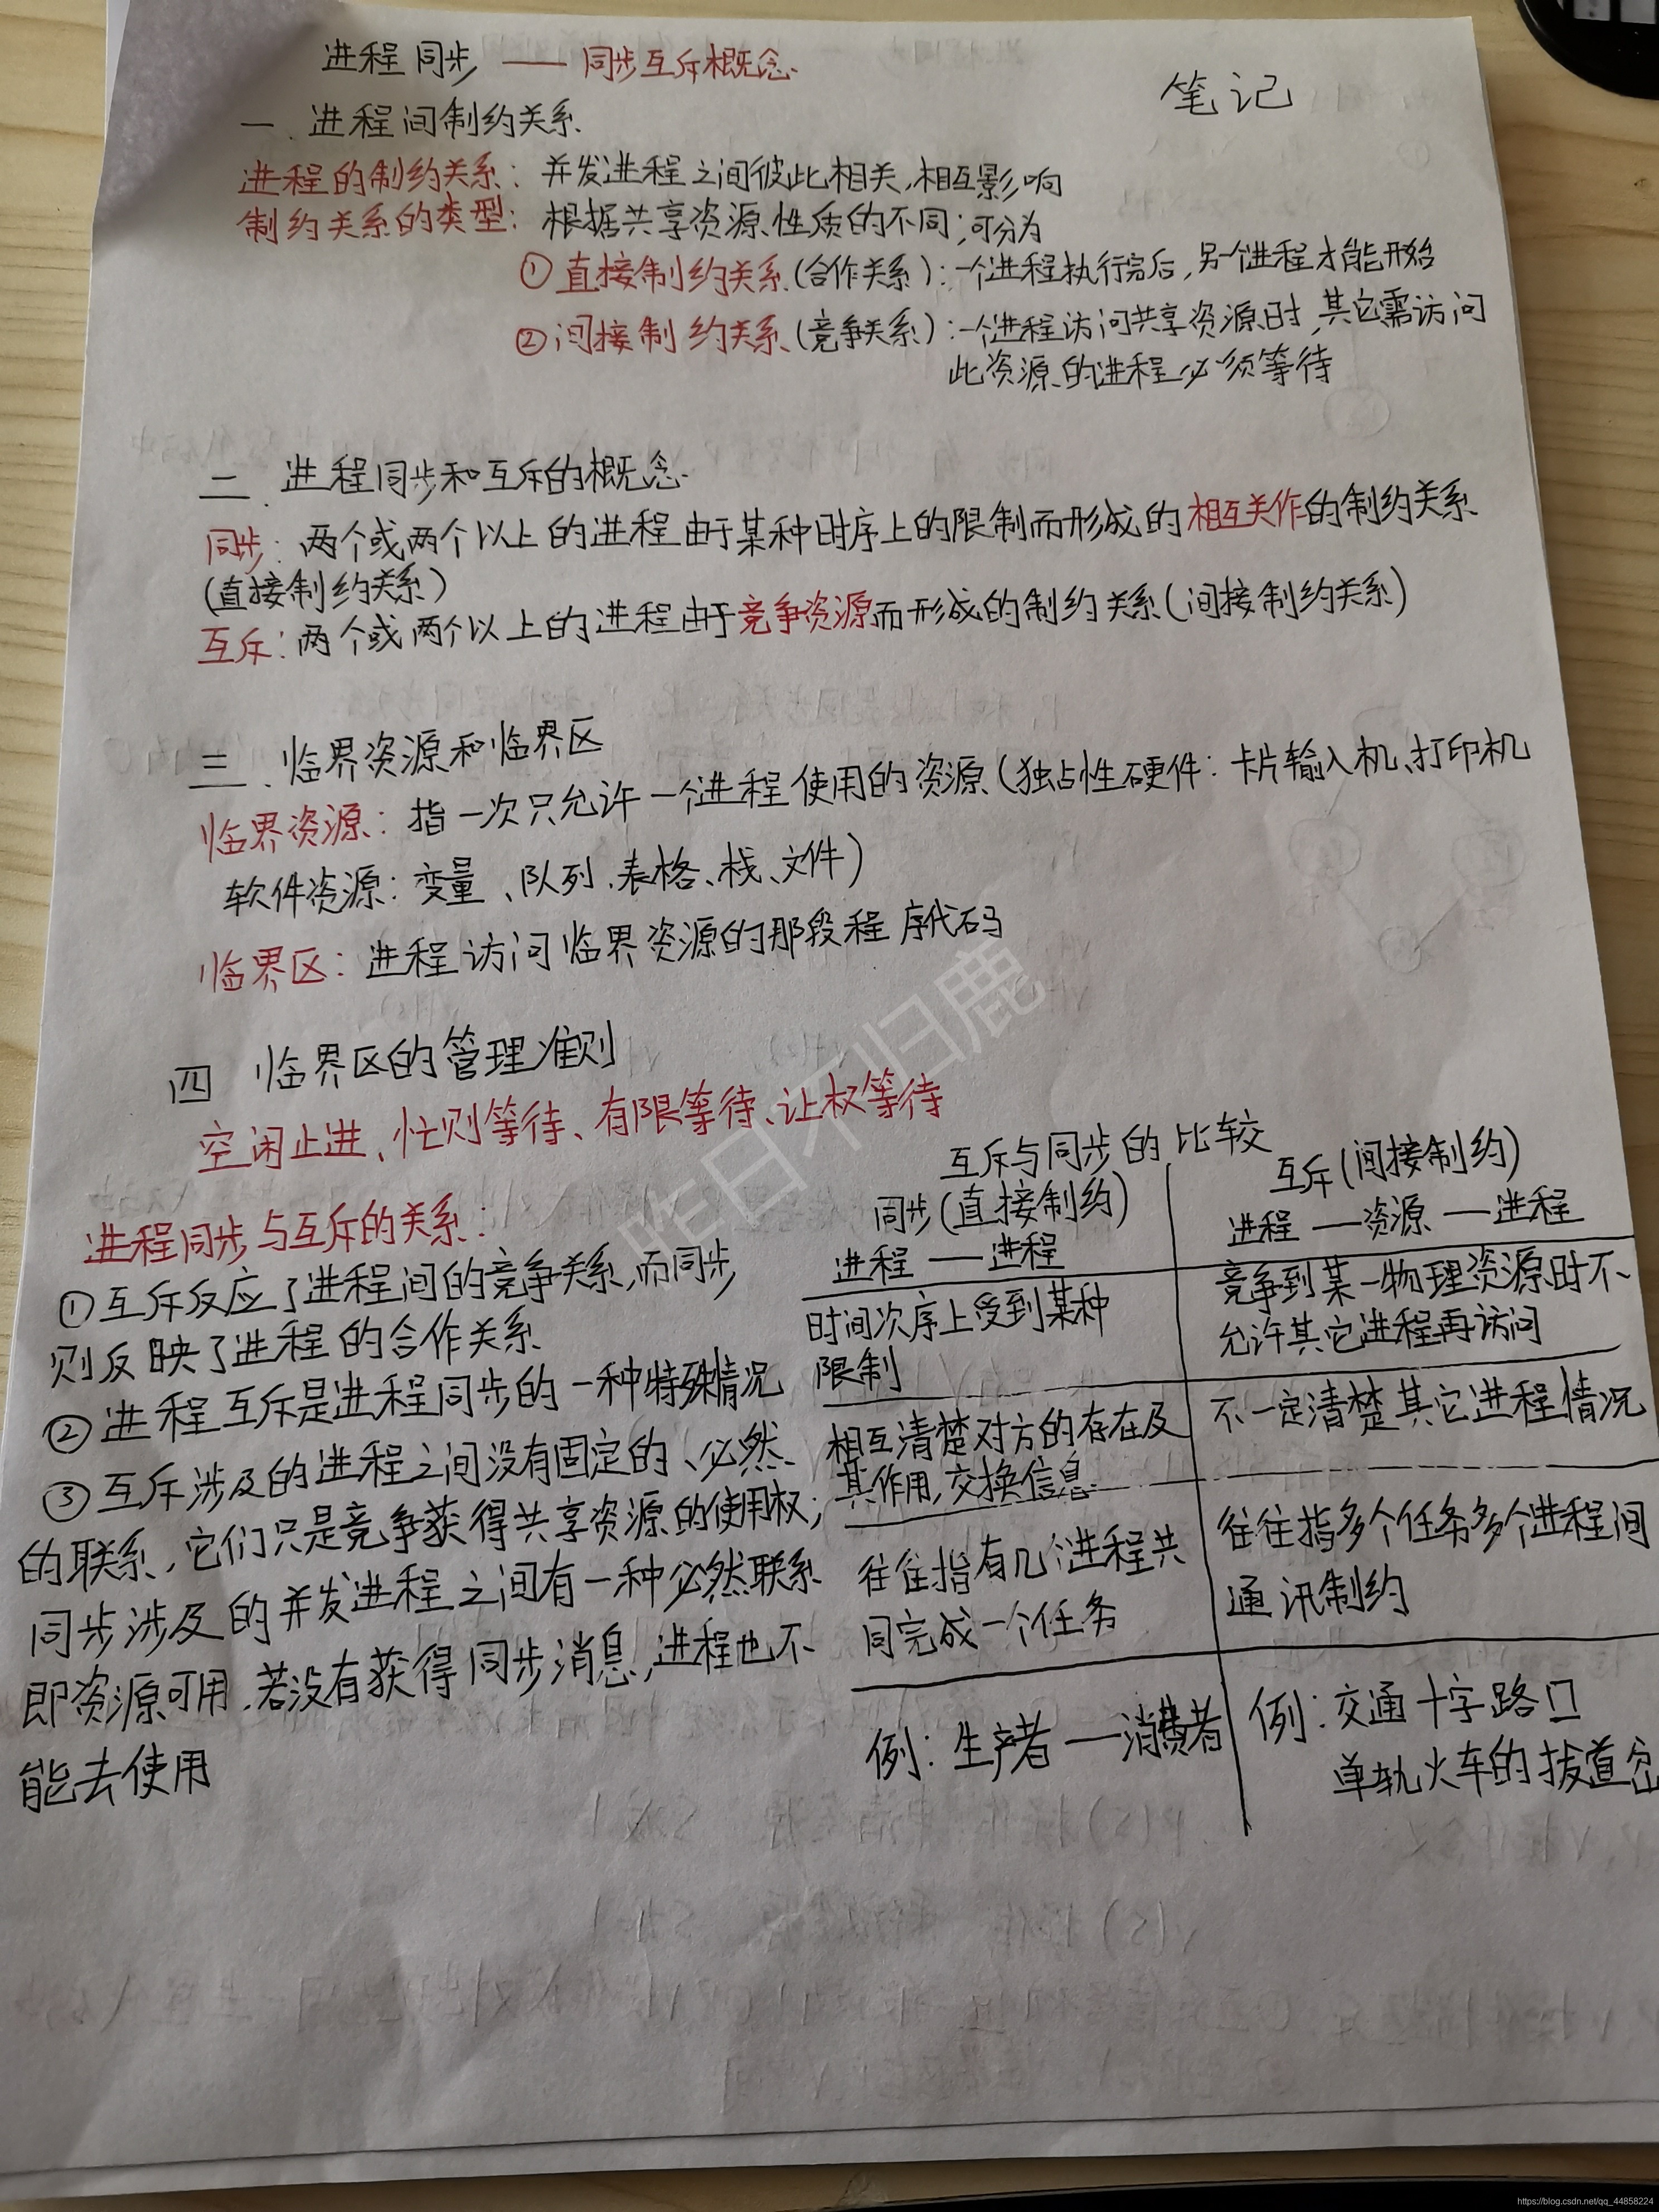 进程同步 —— 同步互斥概念
笔记
一、进程间制约关系
进程的制约关系：并发进程之间彼此相关,相互影响
制约关系的类型：根据共享资源性质的不同,可分为
①直接制约关系(合作关系)：一个进程执行完后,另一个进程才能开始
②间接制约关系(竞争关系)：一个进程访问共享资源时,其它需访问
此资源的进程必须等待
二、进程同步和互斥的概念
同步：两个或两个以上的进程由于某种时序上的限制而形成的相互关作的制约关系
(直接制约关系)
互斥：两个或两个以上的进程由于竞争资源而形成的制约关系(间接制约关系)
三、临界资源和临界区
临界资源：指一次只允许一个进程使用的资源(独占性硬件：卡片输入机、打印机
软件资源：变量、队列、表格、栈、文件)
临界区：进程访问临界资源的那段程序代码
四 临界区的管理准则
空闲止进、忙则等待、有限等待、让权等待
进程同步与互斥的关系：
①互斥反应了进程间的竞争关系,而同步
则反映了进程的合作关系
②进程互斥是进程同步的一种特殊情况
③互斥涉及的进程之间没有固定的、必然
的联系,它们只是竞争获得共享资源的使用权;
同步涉及的并发进程之间有一种必然联系
即资源可用,若没有获得同步消息,进程也不
能去使用
互斥与同步的比较
同步(直接制约)
进程 — 进程
互斥(间接制约)
进程 — 资源 — 进程
时间次序上受到某种
限制
竞争到某一物理资源时不
允许其它进程再访问
相互清楚对方的存在及
其作用,交换信息
不一定清楚其它进程情况
往往指有几个进程共
同完成一个任务
往往指多个任务多个进程间
通讯制约
例：生产者—消费者
例：交通十字路口
单轨火车的拔道岔
昨日不归鹿
https://blog.csdn.net/qq_44858224